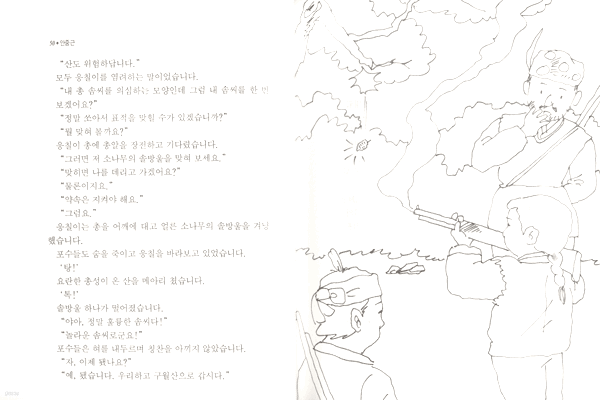 50 • 안중근
“산도 위험하답니다.”
모두 응칠이를 염려하는 말이었습니다.
“내 총 솜씨를 의심하는 모양인데 그럼 내 솜씨를 한 번
보겠어요?”
“정말 쏘아서 표적을 맞힐 수가 있겠습니까?”
“뭘 맞혀 볼까요?”
응칠이 총에 총알을 장전하고 기다렸습니다.
“그러면 저 소나무의 솔방울을 맞혀 보세요.”
“맞히면 나를 데리고 가겠어요?”
“물론이지요.”
“약속은 지켜야 해요.”
“그럼요.”
응칠이는 총을 어깨에 대고 얼른 소나무의 솔방울을 겨냥
했습니다.
포수들도 숨을 죽이고 응칠을 바라보고 있었습니다.
‘탕!’
요란한 총성이 온 산을 메아리 쳤습니다.
‘톡!’
솔방울 하나가 떨어졌습니다.
“야아, 정말 훌륭한 솜씨다!”
“놀라운 솜씨로군요!”
포수들은 혀를 내두르며 칭찬을 아끼지 않았습니다.
“자, 이제 됐나요?”
“예, 됐습니다. 우리하고 구월산으로 갑시다.”